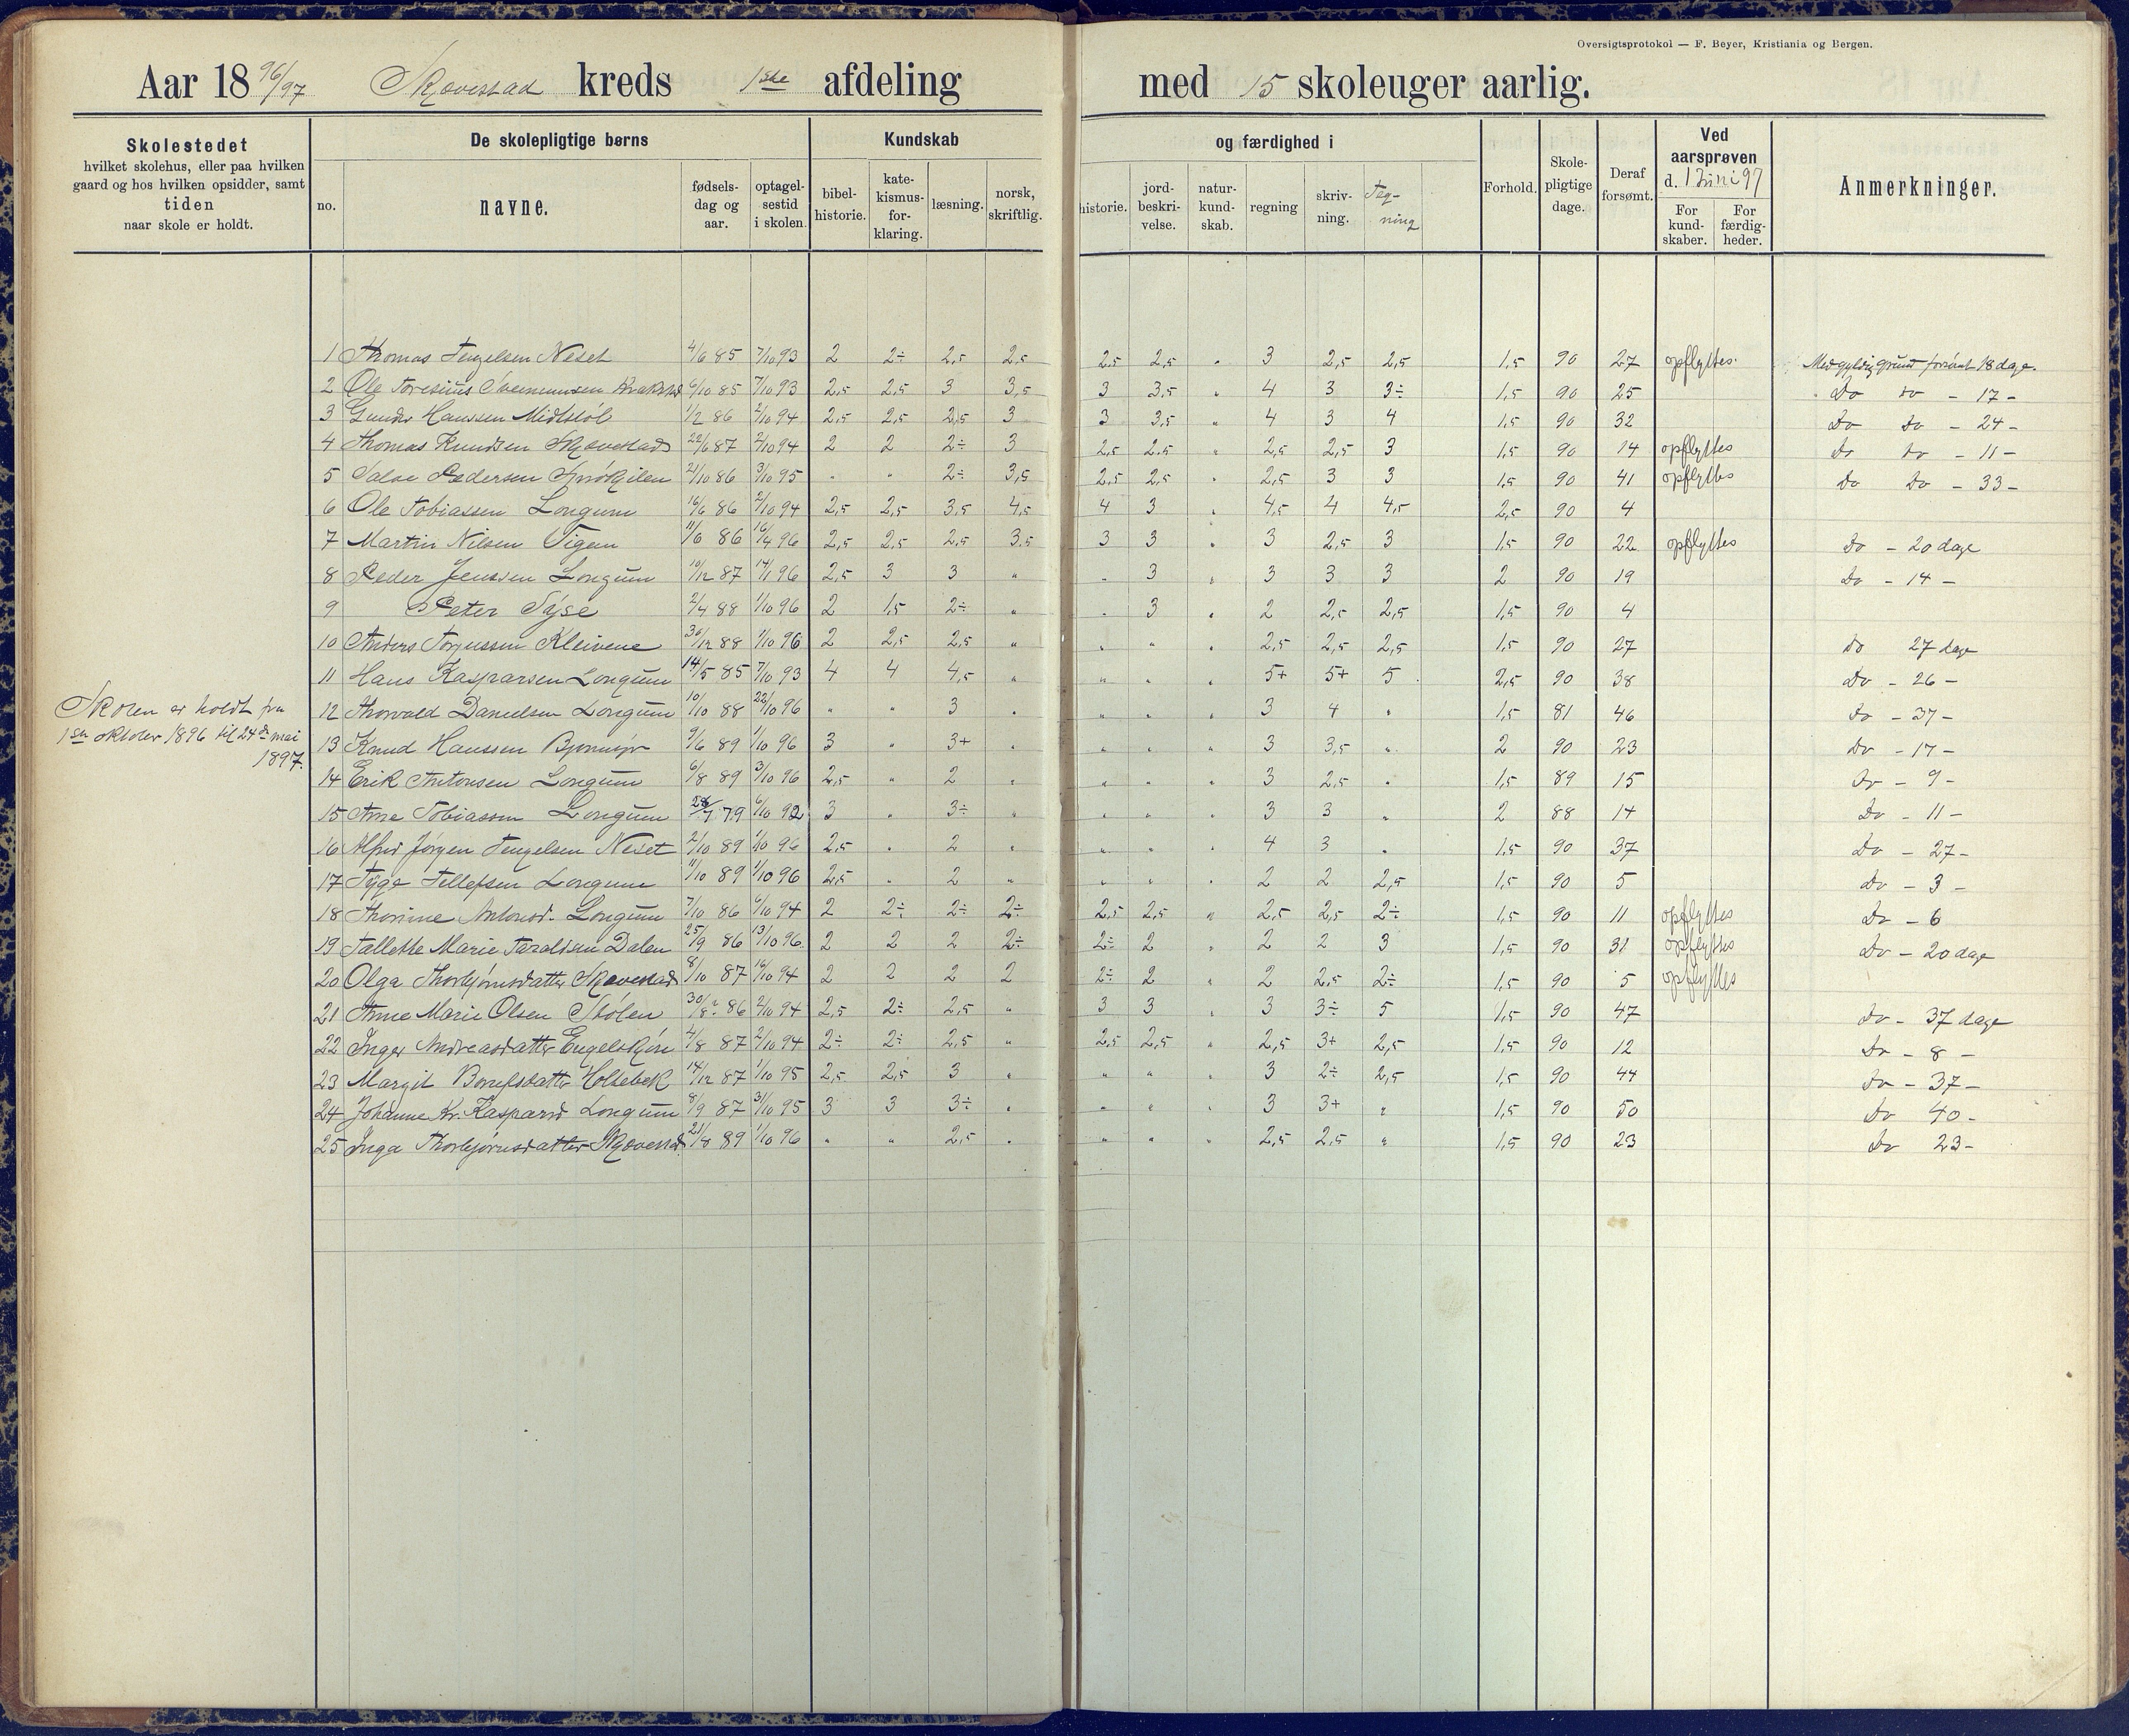 Oversigtsprotokol — F. Beyer, Kristiania og Bergen.
Aar 1896/97 Skovestad kreds 1ste afdeling med 15 skoleuger aarlig.
Skolestedet
hvilket skolehus, eller paa hvilken
gaard og hos hvilken opsidder, samt
tiden
naar skole er holdt.
De skolepligtige børns
no. navne. fødsels-dag og aar. optagel-sestid i skolen.
Kundskab og færdighed i
bibel-historie. kate-kismus-for-klaring. læsning. norsk, skriftlig. historie. jord-beskri-velse. natur-kund-skab. regning skriv-ning. Teg-ning
Forhold. Skole-pligtige dage. Deraf forsømt.
Ved aarsprøven d. 1 Juni 97
For kund-skaber. For færdig-heder.
Anmerkninger.
1 Thomas Tengelsen Neset 4/6 85 7/10 93 2 2÷ 2,5 2,5 2,5 2,5 " 3 2,5 2,5 1,5 90 27 opflyttes Med gyldig grund forsømt 18 dage.
2 Ole 6/10 85 7/10 93 2,5 2,5 3 3,5 3 3,5 " 4 3 3÷ 1,5 90 25 Do do - 17 -
3 Gunder Hanssen Midtstøl 1/2 86 2/10 94 2,5 2,5 2,5 3 3 3,5 " 4 3 4 1,5 90 32 Do do - 24 -
4 Thomas Knudsen Skovestad 22/6 87 2/10 94 2 2 2÷ 3 2,5 2,5 " 2,5 2,5 3 1,5 90 14 opflyttes Do do - 11 -
5 Salve Pedersen 21/10 86 3/10 95 " " 2÷ 3,5 2,5 2,5 " 2,5 3 3 1,5 90 41 opflyttes Do Do - 33 -
6 Ole Tobiassen Longum 16/6 86 2/10 94 2,5 2,5 3,5 4,5 4 3 " 4,5 4 4,5 2,5 90 4
7 Martin Nilsen Vigen 11/6 86 16/4 96 2,5 2,5 2,5 3,5 3 3 " 3 2,5 3 1,5 90 22 opflyttes Do - 20 dage
8 Peder Jenssen Longum 10/12 87 14/1 96 2,5 3 3 " " 3 " 3 3 3 2 90 19 Do - 14 -
9 Peter Tyse 2/4 88 1/10 96 2 1,5 2÷ " " 3 " 2 2,5 2,5 1,5 90 4
10 Anders Torjussen Kleivene 30/12 88 1/10 96 2 2,5 2,5 " " " " 2,5 2,5 2,5 1,5 90 27 Do 27 dage
11 Hans Kasparsen Longum 14/5 85 7/10 93 4 4 4,5 " " " " 5+ 5+ 5 2,5 90 38 Do - 26 -
Skolen er holdt fra
1ste oktober 1896 til 24de mai
1897.
12 Thorvald Danielsen Longum 10/10 88 22/10 96 " " 3 " " " " 3 4 " 1,5 81 46 Do - 37 -
13 Knud Hanssen Bjønmyr 9/6 89 1/10 96 3 " 3+ " " " " 3 3,5 " 2 90 23 Do - 17 -
14 Erik Antonsen Longum 6/8 89 3/10 96 2,5 " 2 " " " " 3 2,5 " 1,5 89 15 Do - 9 -
15 Arne Tobiassen Longum 28/7 79 6/10 92 3 " 3÷ " " " " 3 3 " 2 88 14 Do - 11 -
16 Alfred Jörgen Tengelsen Neset 2/10 89 1/10 96 2,5 " 2 " " " " 4 3 " 1,5 90 37 Do - 27 -
17 Tyge Tellefsen Longum 11/10 89 1/10 96 2,5 " 2 " " " " 2 2 2,5 1,5 90 5 Do - 3 -
18 Thorine Antonsd. Longum 7/10 86 6/10 94 2 2÷ 2÷ 2÷ 2,5 2,5 " 2,5 2,5 2÷ 1,5 90 11 opflyttes Do - 6
19 Tallette Marie Taraldsen Dalen 25/9 86 13/10 96 2 2 2 2÷ 2÷ 2 " 2 2 3 1,5 90 31 opflyttes Do - 20 dage
20 Olga Thorbjörnsdatter Skovestad 8/10 87 16/10 94 2 2 2 2 2÷ 2 " 2 2,5 2÷ 1,5 90 5 opflyttes
21 Anne Marie Olsen Stölen 30/8 86 2/10 94 2,5 2÷ 2,5 " 3 3 " 3 3÷ 5 1,5 90 47 Do - 37 dage
22 Inger Andreasdatter Engelskjøn 4/8 87 2/10 94 2÷ 2÷ 2,5 " 2,5 2,5 " 2,5 3+ 2,5 1,5 90 12 Do - 8 -
23 Margit Holtebek 14/12 87 1/10 95 2,5 2,5 3 " " " " 3 2÷ 2,5 1,5 90 44 Do - 37 -
24 Johanne Kr. Kasparsd Longum 8/9 87 31/10 95 3 3 3÷ " " " " 3 3+ " 1,5 90 50 Do 40 -
25 Inga Thorbjörnsdatter Skovestad 21/8 89 1/10 96 " " 2,5 " " " " 2,5 2,5 " 1,5 90 23 Do 23 -